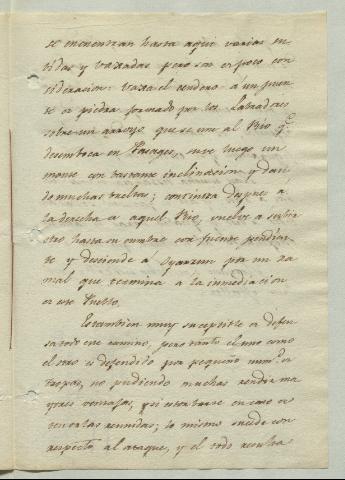 se encuentran hasta aqui varias su-
vidas y vaxadas pero son de poco con-
sideracion: vaxa el sendero á un puen-
te de piedra formado por los Labradores
sobre un arroyo que se une al Rio q.e
desemboca en Pasages, sube luego un
monte con bastante inclinacion y dan-
do muchas vueltas; continua despues a
la derecha de aquel Rio, vuelve a subir
otro hasta su cumbre con fuerte pendien-
te y desciende a Oyarzun por un ra-
mal que termina a la inmediacion
de este Pueblo.
Es tambien muy suceptible de defen-
sa todo este camino, pero tanto el uno como
el otro es defendido por pequeño num.o de
tropas, no pudiendo muchas tendra ma-
yores ventajas, y si encontrarse en caso de
tenerlas reunidas; lo mismo sucede con
respecto al ataque, y el todo resulta